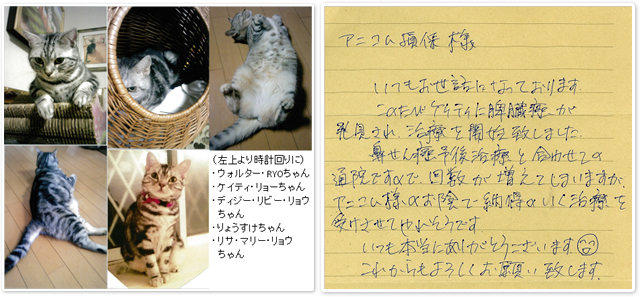 (左上より時計回りに)
・ウォルター・RYOちゃん
・ケイティ・リョーちゃん
・ディジー・リビー・リョウ
ちゃん
・りょうすけちゃん
・リサ・マリー・リョウ
ちゃん
アニコム損保 様
いつもお世話になっております
このたびケイティに脾臓癌が
発見され、治療を開始致しました
鼻せん癌予後治療と合わせての
通院ですので、回数が増えてしまいますが、
アニコム様のお陰で納得のいく治療を
受けさせてやれそうです
いつも本当にありがとうございます
これからもよろしくお願い致します。